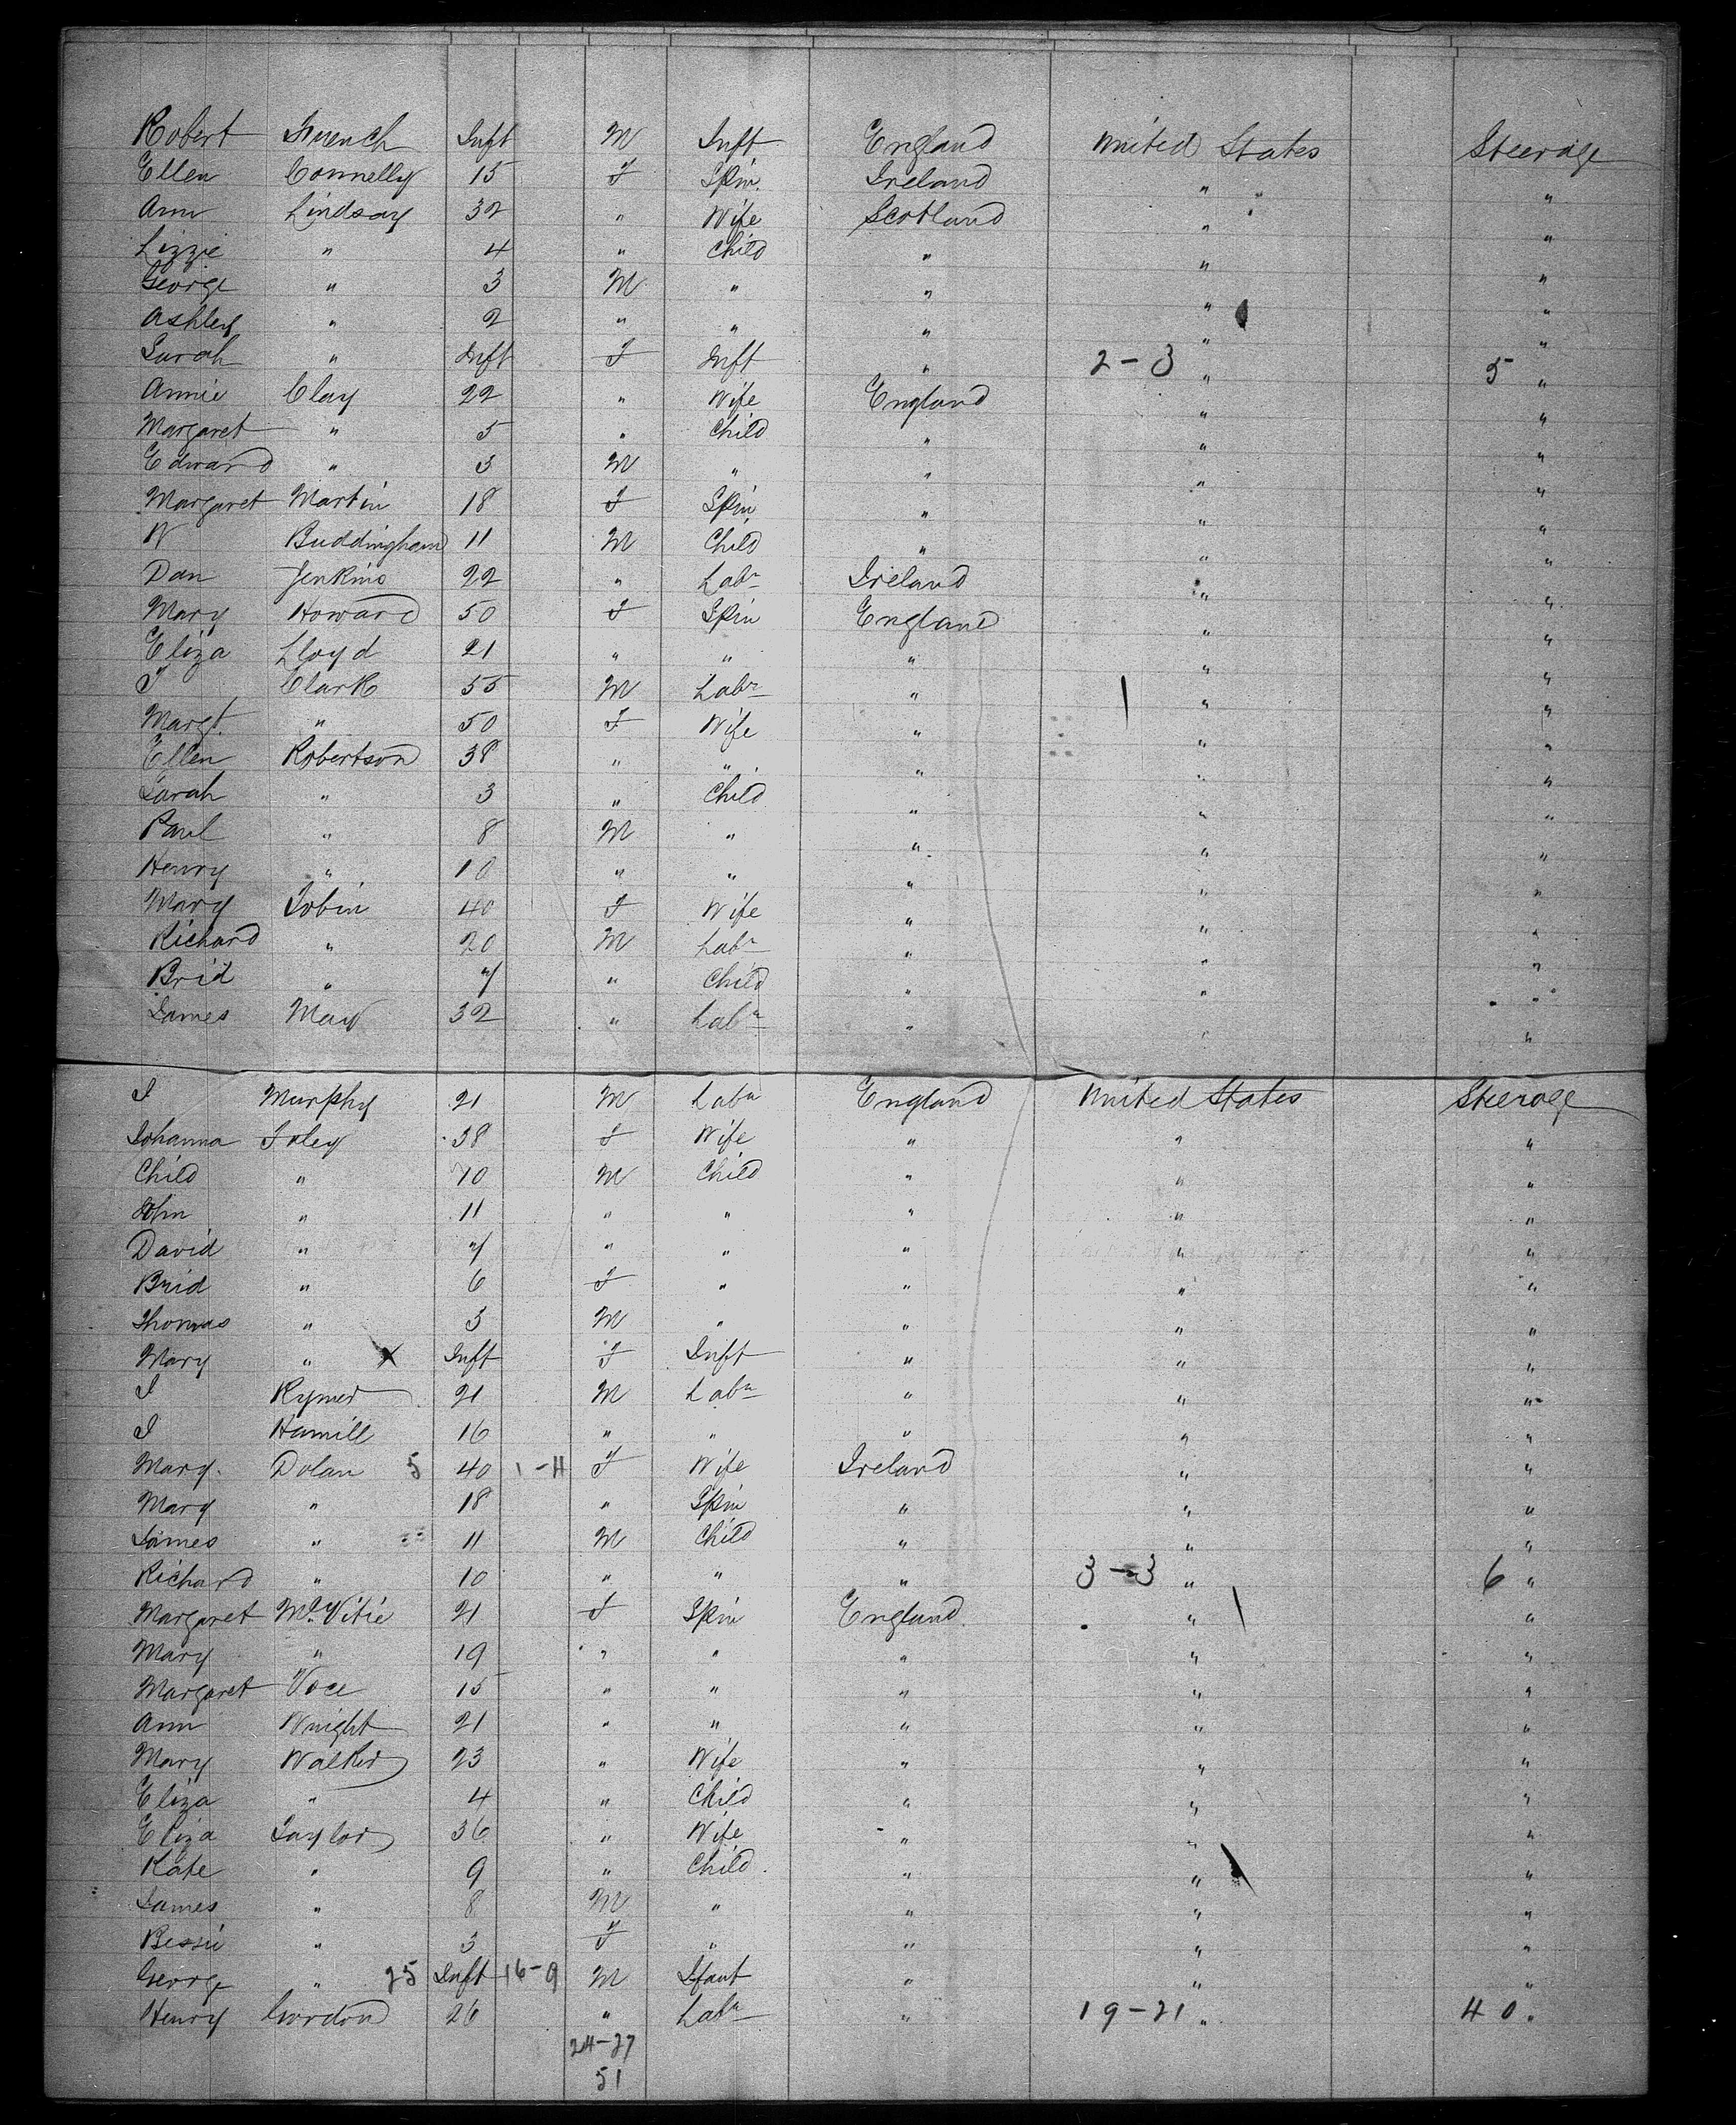 Robert French Inft M Inft England United States Steerage
Ellen Connelly 15 F Spin. Ireland " "
Ann Lindsay 32 " Wife Scotland " "
Lizzie " 4 " Child " " "
George " 3 M " " " "
Ashley " 2 " " " " "
Sarah " Inft F Inft " 2-3 " 5 "
Annie Clay 22 " Wife England " "
Margaret " 5 " Child " " "
Edward " 3 M " " " "
Margaret Martin 18 F Spin " " "
W Buddingham 11 M Child " " "
Dan Jenkins 22 " Labr Ireland " "
Mary Howard 50 F Spin England " "
Eliza Lloyd 21 " " " " "
J Clark 55 M Labr " " "
Margt. " 50 F Wife " " "
Ellen Robertson 38 " " " " "
Sarah " 3 " Child " " "
Paul " 8 M " " " "
Henry " 10 " " " " "
Mary Tobin 40 F Wife " " "
Richard " 20 M Labr " " "
Brid " 7 " Child " " "
James May 32 " Labr " " "
J Murphy 21 M Labr England United States Steerage
Johanna Foley 38 F Wife " " "
Child " 10 M Child " " "
John " 11 " " " " "
David " 7 " " " " "
Brid " 6 F " " " "
Thomas " 3 M " " " "
Mary " X Inft F Inft " " "
J Rymer 21 M Labr " " "
J Hamill 16 " " " " "
Mary Dolan 5 40 1-4 F Wife Ireland " "
Mary " 18 " Spin " " "
James " 11 M Child " " "
Richard " 10 " " " 3-3 " 6 "
Margaret McVitie 21 F Spin England " "
Mary " 19 " " " " "
Margaret Voce 15 " " " " "
Ann Wright 21 " " " " "
Mary Walker 23 " Wife " " "
Eliza " 4 " Child " " "
Eliza Taylor 36 " Wife " " "
Kate " 9 " Child " " "
James " 8 M " " " "
Bessie " 3 F " " " "
George " 25 Inft 16-9 M Ifant " " "
Henry Gordon 26 " Labr " 19-21 " 40 "
24-27
51